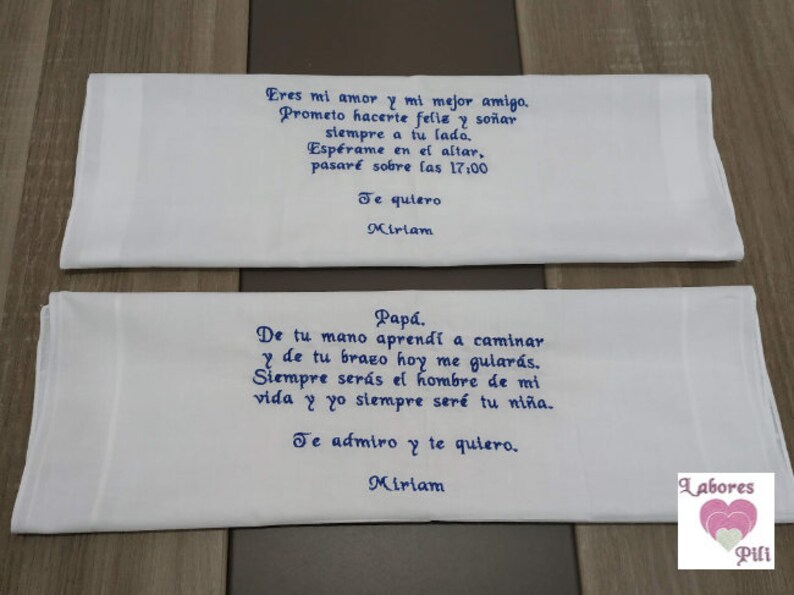 Eres mi amor y mi mejor amigo.
Prometo hacerte feliz y soñar
siempre a tu lado.
Espérame en el altar,
pasaré sobre las 17:00
Te quiero
Miriam
Papá.
De tu mano aprendí a caminar
y de tu brazo hoy me guiarás.
Siempre serás el hombre de mi
vida y yo siempre seré tu niña.
Te admiro y te quiero.
Miriam
Labores
Pili